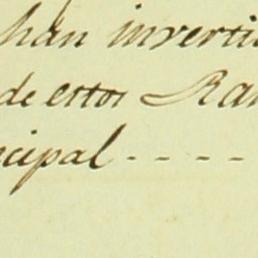 han inverti
de estos Ra
cipal - - - -